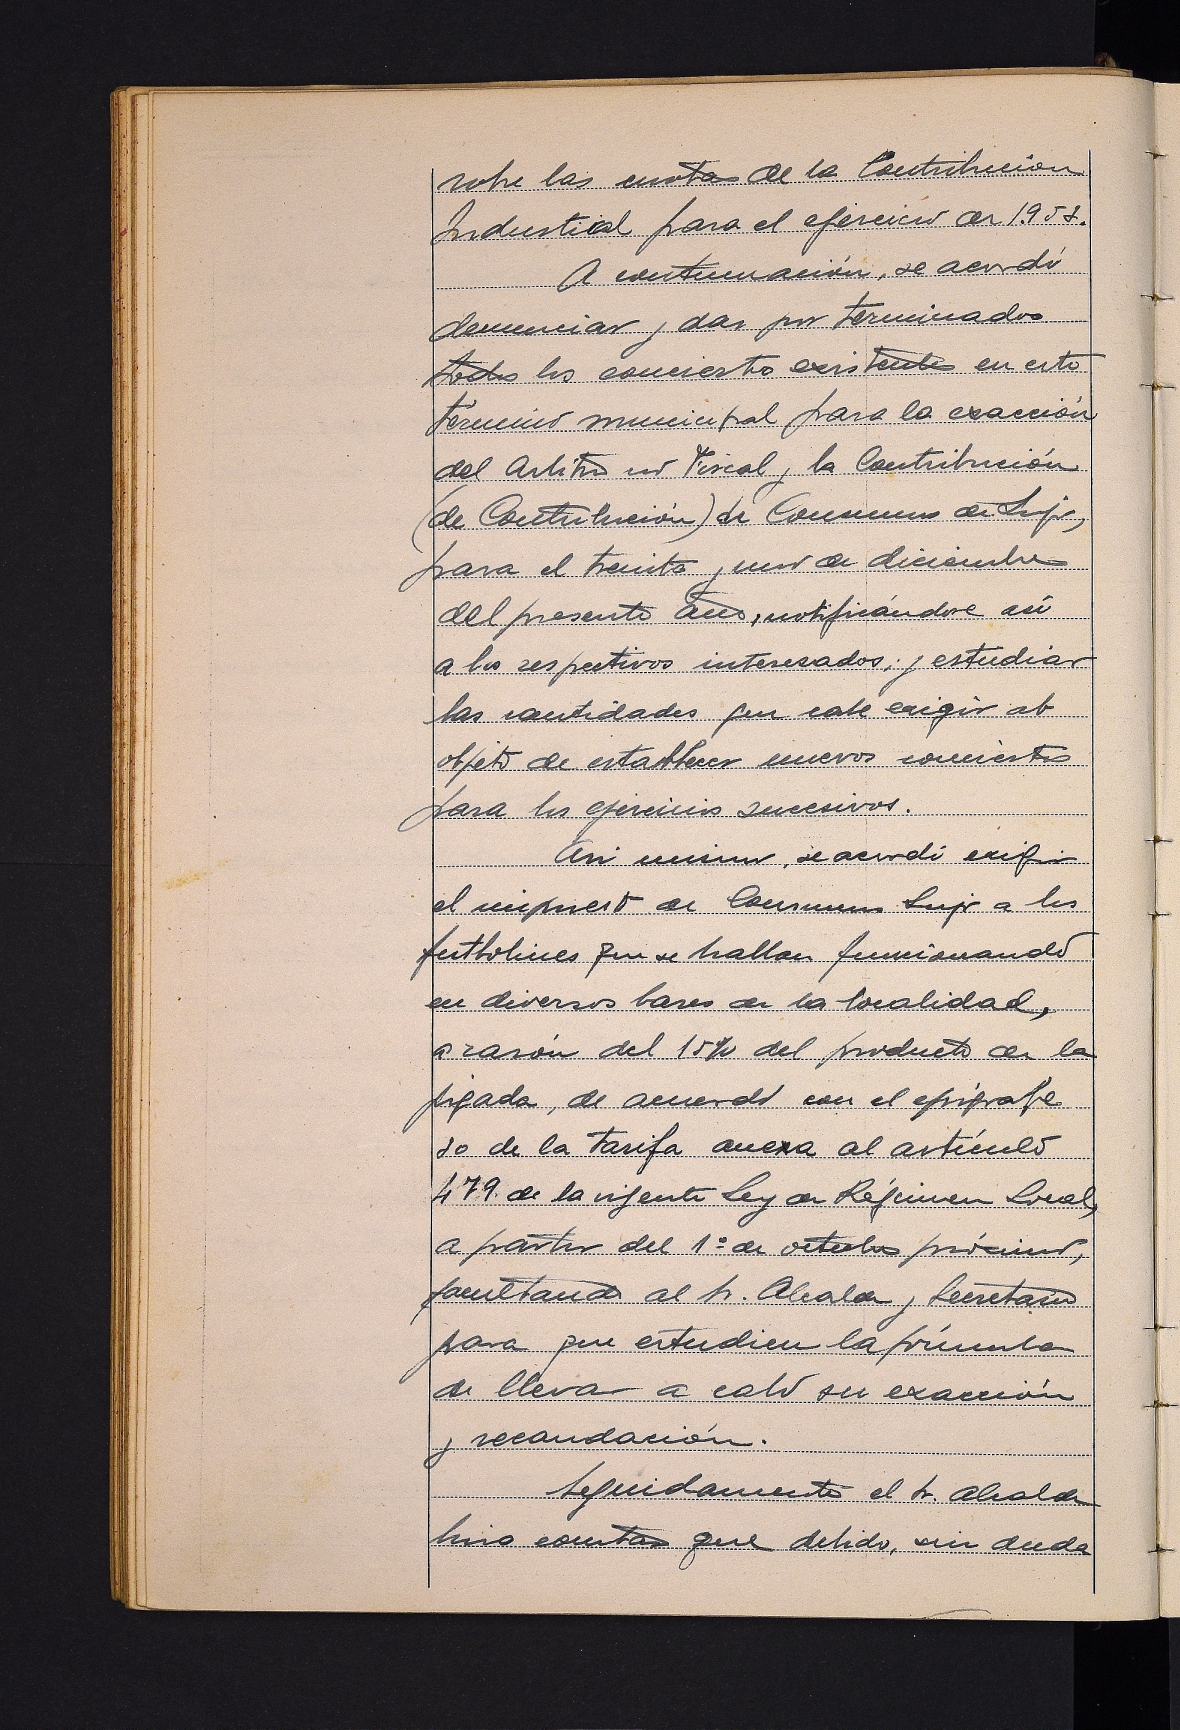 sobre las cuotas de la Contribución
Industrial para el ejercicio de 1.958.
A continuación, se acordó
denunciar y dar por terminados
todos los conciertos existentes en este
término municipal para la exacción
del Arbitrio no Fiscal y la Contribución
(de Contribución) de Consumos de Lujo,
para el treinta y uno de diciembre
del presente año, notificándose así
a los respectivos interesados; y estudiar
las cantidades que cabe exigir al
objeto de establecer nuevos conciertos
para los ejercicios sucesivos.
Asi mismo, se acordó exigir
el impuesto de Consumos Lujo a los
futbolines que se hallan funcionando
en diversos bares de la localidad,
a razón del 15% del producto de la
jugada, de acuerdo con el epígrafe
20 de la tarifa anexa al artículo
479 de la vigente Ley de Régimen Local,
a partir del 1º de octubre próximo,
facultando al Sr. Alcalde y Secretario
para que estudien la fórmula
de llevar a cabo su exacción
y recaudación.
Seguidamente el Sr. Alcalde
hizo constar que debido, sin duda